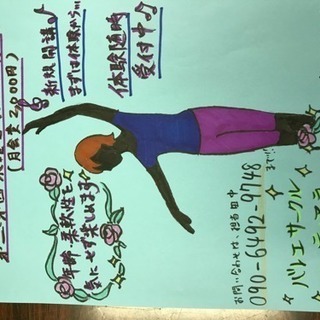 新規開講♪
まずは体験から…
体験随時
受付中♪
年齢、柔軟性を
気にせず楽しめます
お問い合わせは、担当 田中
090-6492-9748
まで!!
バレエサークル